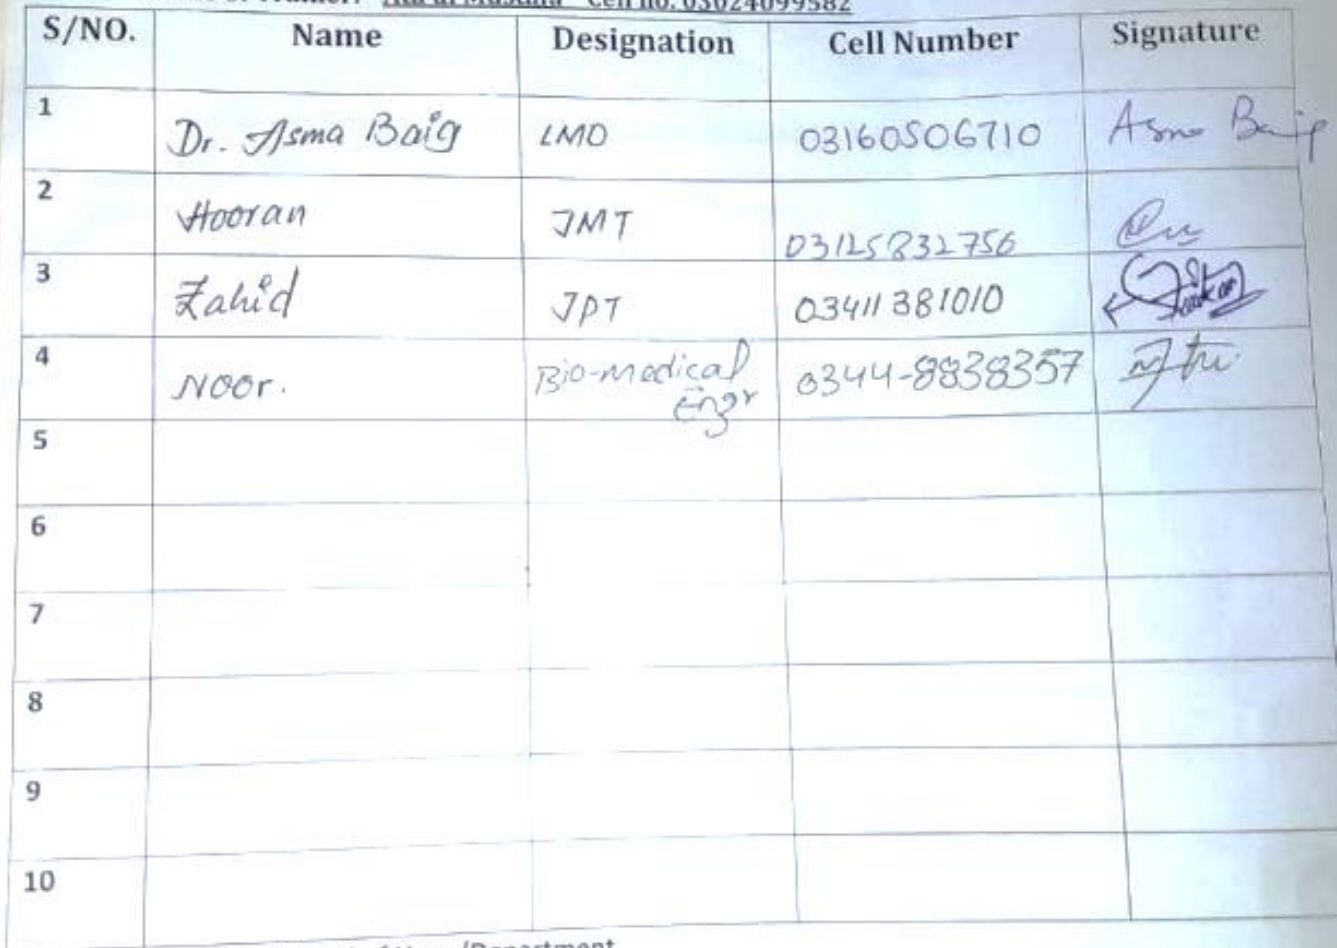 Cell no. 03024099582
S/NO. Name Designation Cell Number Signature
1 Dr. Asma Baig LMO 03160506710 Asma Baig
2 Hooran JMT 03125832756
3 Zahid JPT 03411381010
4 NOOR. Bio-medical Engr 0344-8838357
5
6
7
8
9
10
/Department